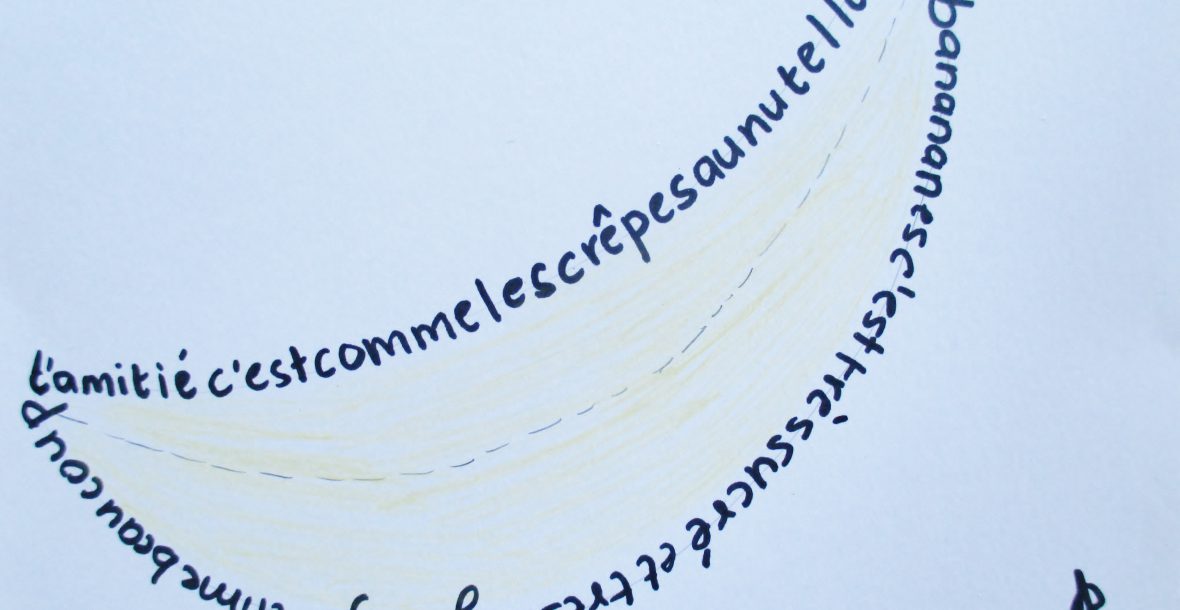 L'amitié c'estcommelescrêpesaunutella
banananesc'esttrèssucréettrès
beaucoup